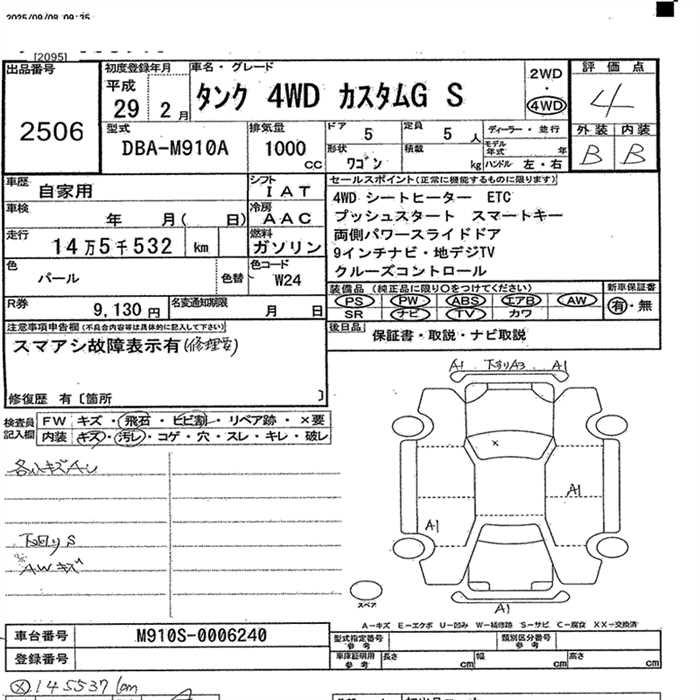 2025/09/08 09:25
[2095]
出品番号
2506
初度登録年月
平成
29 2 月
車名・グレード
タンク 4WD カスタムG S
2WD
・
4WD
評価点
4
外装 内装
B B
型式
DBA-M910A
排気量
1000
CC
ドア 5
定員 5 人
形状 ワゴン
積載 kg
ディーラー・並行
モデル年式 年
ハンドル 左・右
車歴 自家用
シフト
I A T
車検 年 月( 日)
冷房
A A C
走行 14 万 5 千 532 km
燃料
ガソリン
色 パール
色替
色コード
W24
R券 9,130 円
名変通知期限 月 日
セールスポイント(正常に機能するものに限ります)
4WD シートヒーター ETC
プッシュスタート スマートキー
両側パワースライドドア
9インチナビ・地デジTV
クルーズコントロール
装備品(純正品に限り○をつけてください)
PS PW ABS エアB AW
SR ナビ TV カワ
新車保証書
有・無
後日品 保証書・取説・ナビ取説
注意事項申告欄(不具合内容等は具体的に記入して下さい)
スマアシ故障表示有(修理要)
修復歴 有〔箇所 〕
検査員
記入欄
FW キズ・飛石・ヒビ割・リペア跡・×要
内装 キズ・汚レ・コゲ・穴・スレ・キレ・破レ
下回りS
AWキズ
A1 下回りA3 A1
×
A1
A1
A1
スペア
A-キズ E-エクボ U-凹み W-補修跡 S-サビ C-腐食 XX-交換済
車台番号 M910S-0006240
登録番号
型式指定番号
参考
類別区分番号
参考
車庫証明用
参考
長さ cm 幅 cm 高さ cm
× 145537km